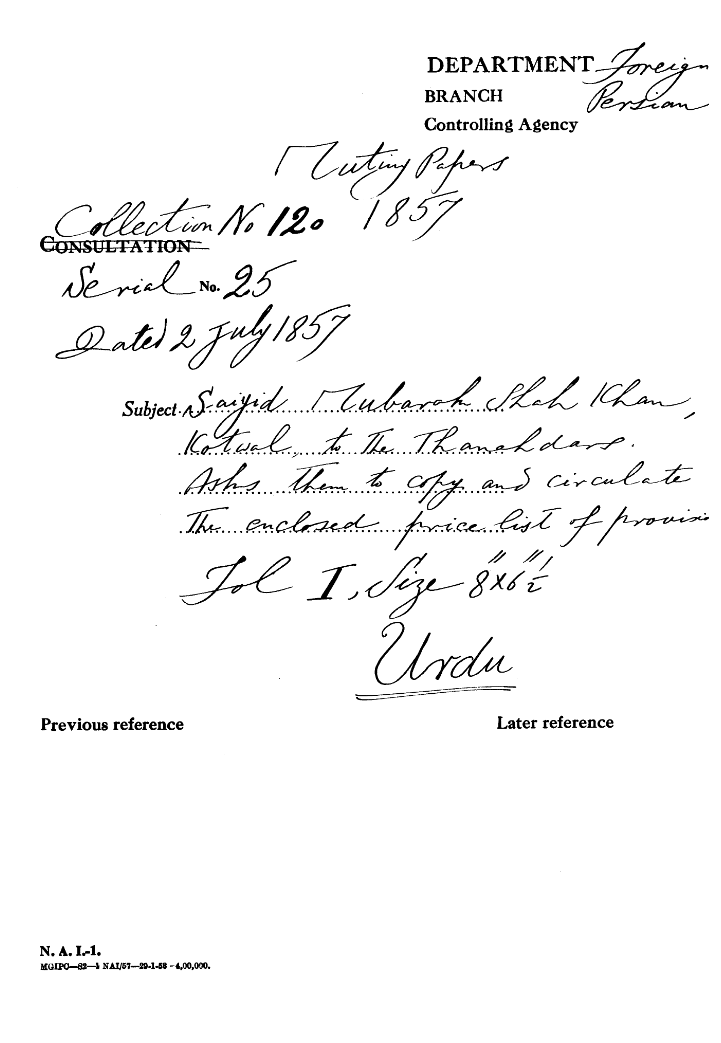 DEPARTMENT Foreign
BRANCH Persian
Controlling Agency
Mutiny Papers
Collection No 120 1857
CONSULTATION
Serial No. 25
Dated 2 July 1857
Subject. Saiyid Mubarak Shah Khan,
Kotwal, to the Thanahdars.
Asks them to copy and circulate
the enclosed price list of provisi
Fol I, Size 8" x 6½"
Urdu
Previous reference Later reference
N. A. I.-1.
MGIPC—S2—1 NAI/57—29-1-58—4,00,000.